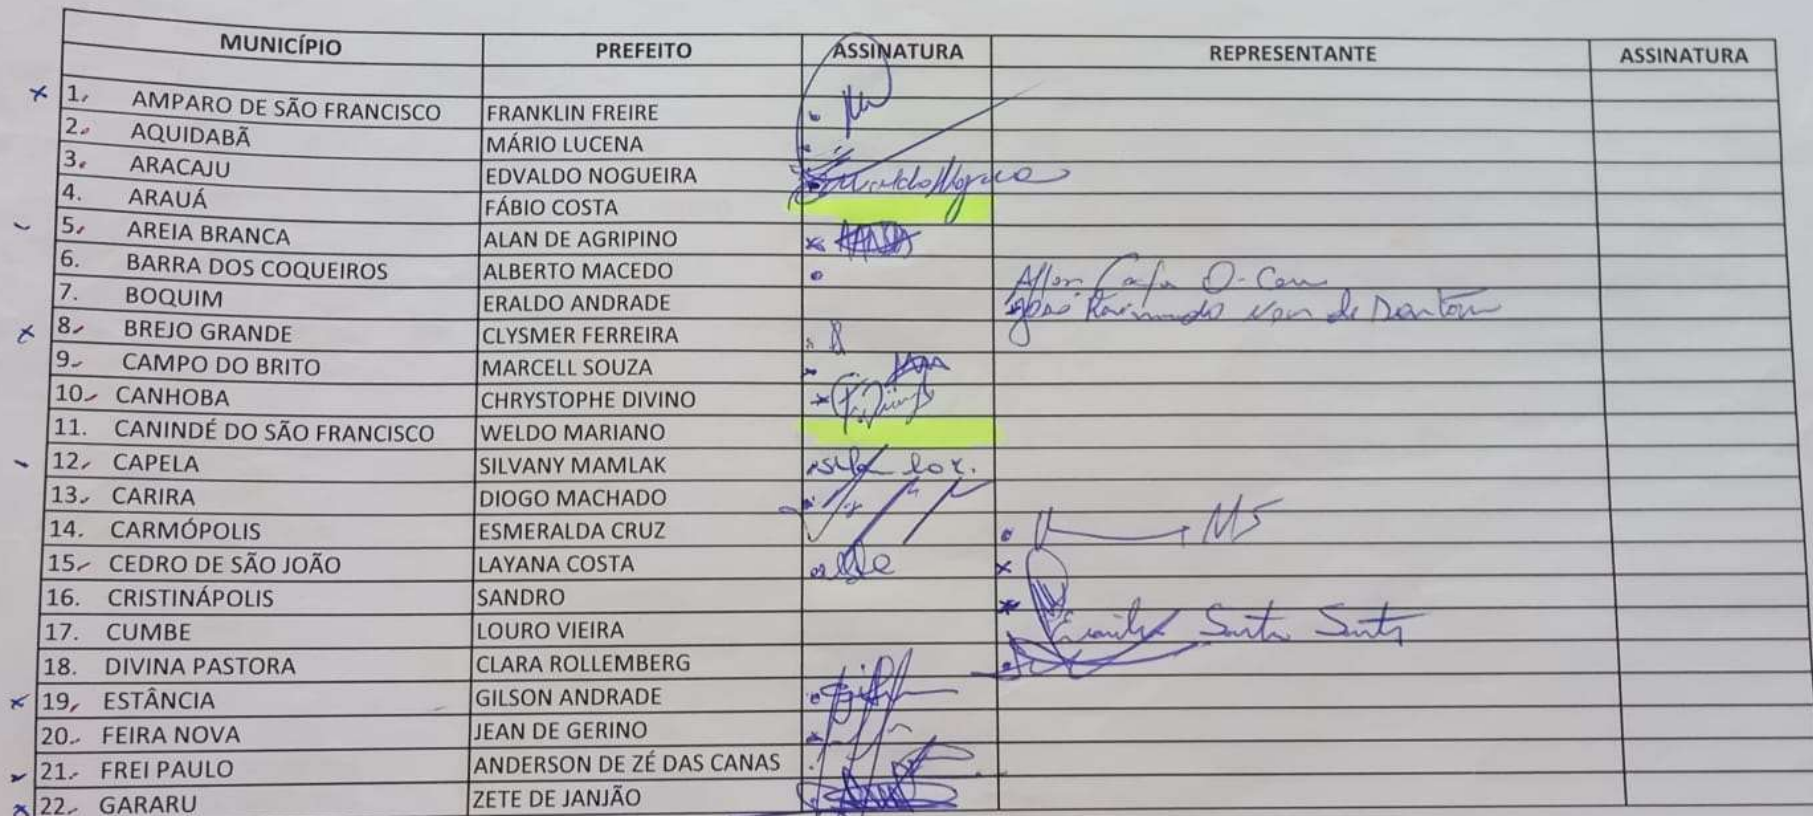 MUNICÍPIO PREFEITO ASSINATURA REPRESENTANTE ASSINATURA
1. AMPARO DE SÃO FRANCISCO FRANKLIN FREIRE
2. AQUIDABÃ MÁRIO LUCENA
3. ARACAJU EDVALDO NOGUEIRA Edvaldo Nogueira
4. ARAUÁ FÁBIO COSTA
5. AREIA BRANCA ALAN DE AGRIPINO
6. BARRA DOS COQUEIROS ALBERTO MACEDO
7. BOQUIM ERALDO ANDRADE José Raimundo de
8. BREJO GRANDE CLYSMER FERREIRA
9. CAMPO DO BRITO MARCELL SOUZA
10. CANHOBA CHRYSTOPHE DIVINO
11. CANINDÉ DO SÃO FRANCISCO WELDO MARIANO
12. CAPELA SILVANY MAMLAK
13. CARIRA DIOGO MACHADO
14. CARMÓPOLIS ESMERALDA CRUZ
15. CEDRO DE SÃO JOÃO LAYANA COSTA
16. CRISTINÁPOLIS SANDRO
17. CUMBE LOURO VIEIRA
18. DIVINA PASTORA CLARA ROLLEMBERG
19. ESTÂNCIA GILSON ANDRADE
20. FEIRA NOVA JEAN DE GERINO
21. FREI PAULO ANDERSON DE ZÉ DAS CANAS
22. GARARU ZETE DE JANJÃO